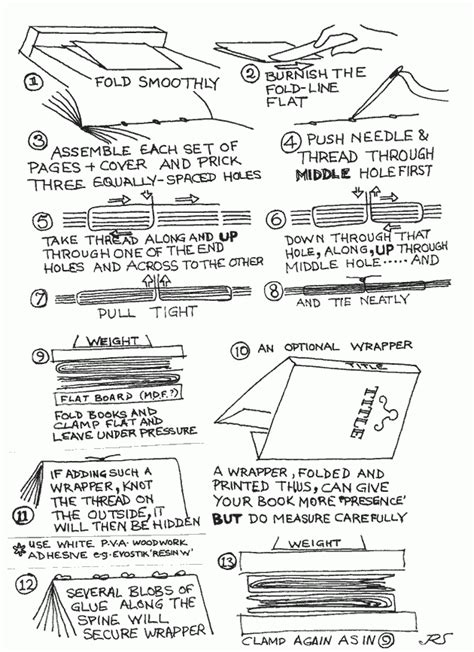 1 FOLD SMOOTHLY
2 BURNISH THE
FOLD-LINE
FLAT
3 ASSEMBLE EACH SET OF
PAGES + COVER AND PRICK
THREE EQUALLY-SPACED HOLES
4 PUSH NEEDLE &
THREAD THROUGH
MIDDLE HOLE FIRST
5
TAKE THREAD ALONG AND UP
THROUGH ONE OF THE END
HOLES AND ACROSS TO THE OTHER
6
DOWN THROUGH THAT
HOLE, ALONG, UP THROUGH
MIDDLE HOLE ..... AND
7
PULL TIGHT
8
AND TIE NEATLY
9 WEIGHT
FLAT BOARD (M.D.F.?)
FOLD BOOKS AND
CLAMP FLAT AND
LEAVE UNDER PRESSURE
10 AN OPTIONAL WRAPPER
TITLE
TITLE
A WRAPPER, FOLDED AND
PRINTED THUS, CAN GIVE
YOUR BOOK MORE 'PRESENCE'
BUT DO MEASURE CAREFULLY
11
IF ADDING SUCH A
WRAPPER, KNOT
THE THREAD ON
THE OUTSIDE, IT
WILL THEN BE HIDDEN
* USE WHITE P.V.A. WOODWORK
ADHESIVE e.g. EVOSTIK 'RESIN W'
12
SEVERAL BLOBS OF
GLUE ALONG THE
SPINE WILL
SECURE WRAPPER
13 WEIGHT
CLAMP AGAIN AS IN 9